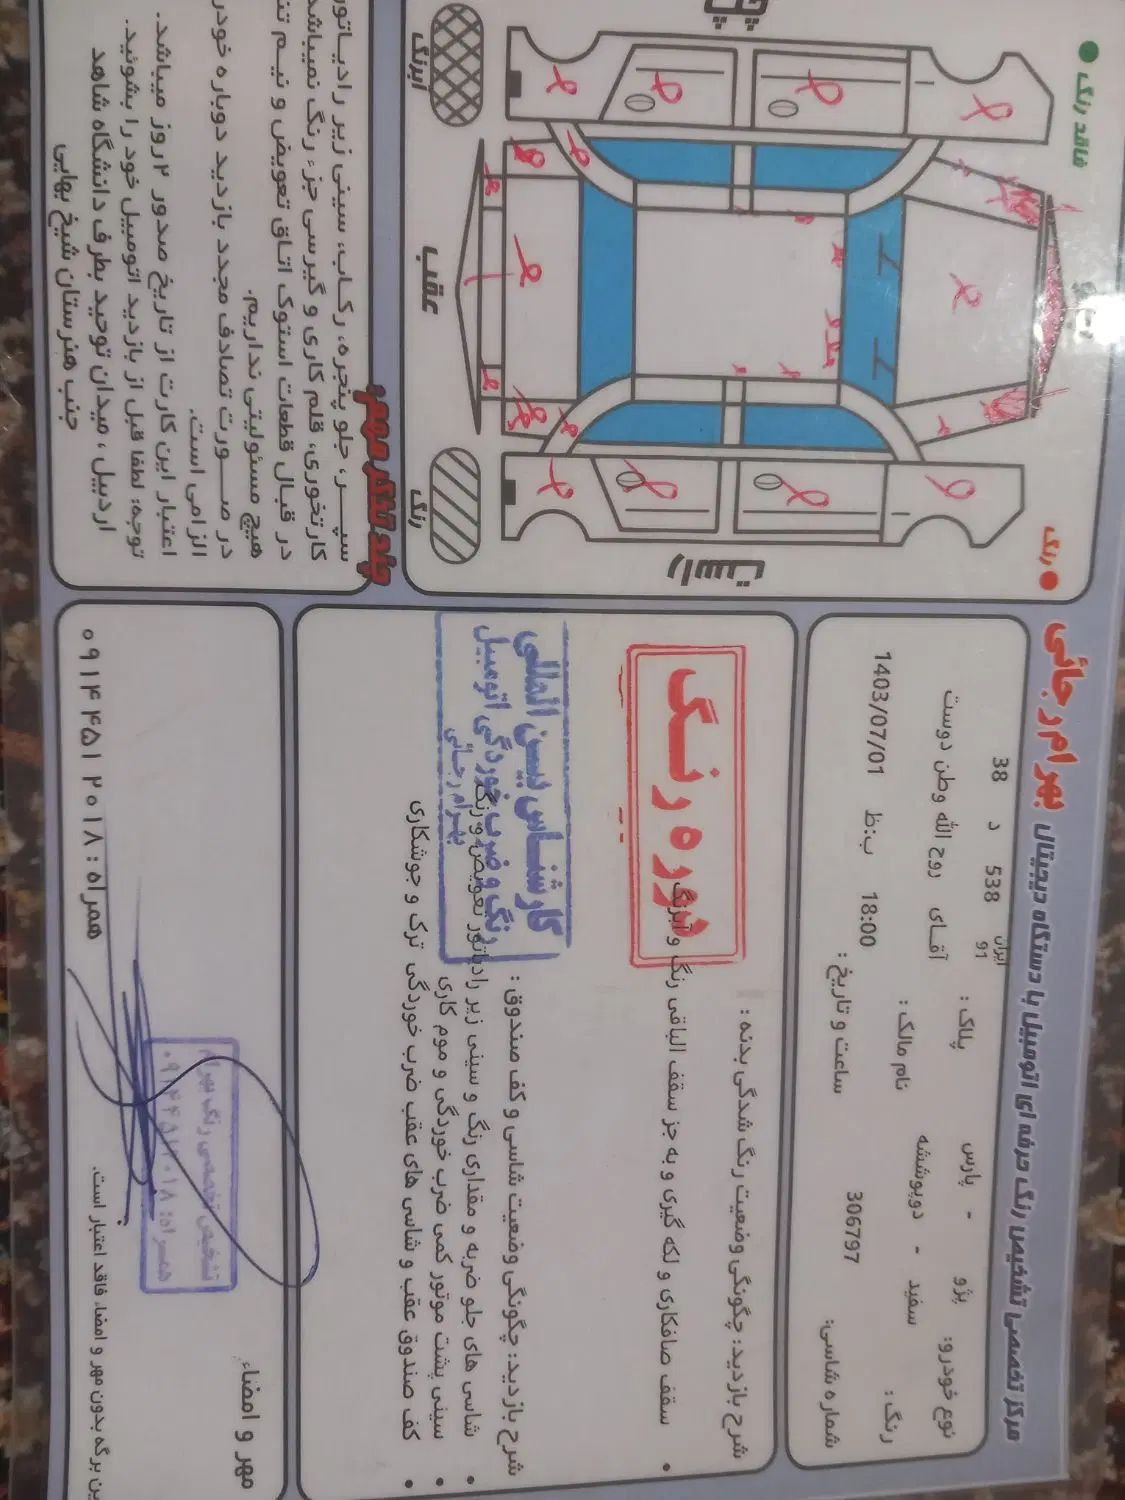 مرکز تخصصی تشخیص رنگ حرفه ای اتومبیل با دستگاه دیجیتال بهرام رجائی
نوع خودرو: پژو - پارس
پلاک: ایران 91 538 د 38
رنگ: سفید - دوپوششه
نام مالک: آقای روح الله وطن دوست
شماره شاسی: 306797
ساعت و تاریخ: 18:00 ب:ظ 1403/07/01
شرح بازدید: چگونگی وضعیت رنگ شدگی بدنه:
سقف صافکاری و لکه گیری و به جز سقف الباقی رنگ و آبرنگ
دوره رنگ
شرح بازدید: چگونگی وضعیت شاسی و کف صندوق:
شاسی های جلو ضربه و مقداری رنگ و سینی زیر رادیاتور تعویض و رنگ
سینی پشت موتور کمی ضرب خوردگی و موم کاری
کف صندوق عقب و شاسی های عقب ضرب خوردگی ترک و جوشکاری
کارشناس بین المللی
رنگ و ضرب خوردگی اتومبیل
بهرام رجائی
مهر و امضاء
تشخیص تخصصی رنگ بهرام
همراه: ۰۹۱۴۴۵۱۲۰۱۸
همراه: ۰۹۱۴۴۵۱۲۰۱۸
این برگه بدون مهر و امضاء فاقد اعتبار است.
رنگ
فاقد رنگ
راست
چپ
عقب
رنگ
ابرنگ
چند تذکر مهم:
سپر، جلو پنجره، رکاب، سینی زیر رادیاتور
کارتخوری، قلم کاری و گیرسی جزء رنگ نمیباشد
در قبال قطعات استوک اتاق تعویض و نیم تنه
هیچ مسئولیتی نداریم.
در صورت تصادف مجدد بازدید دوباره خودرو
الزامی است.
اعتبار این کارت از تاریخ صدور ۲ روز میباشد.
توجه: لطفا قبل از بازدید اتومبیل خود را بشوئید.
اردبیل، میدان توحید بطرف دانشگاه شاهد
جنب هنرستان شیخ بهایی